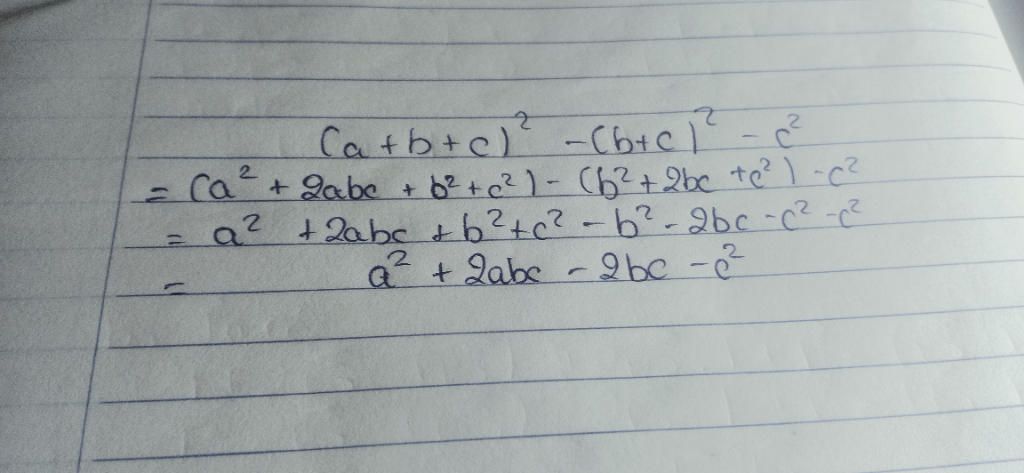 (a+b+c)² -(b+c)² - c²
= (a² + 2abc + b²+c²) - (b²+2bc +c²) -c²
= a² +2abc +b²+c² -b² -2bc -c² -c²
= a² + 2abc - 2bc -c²